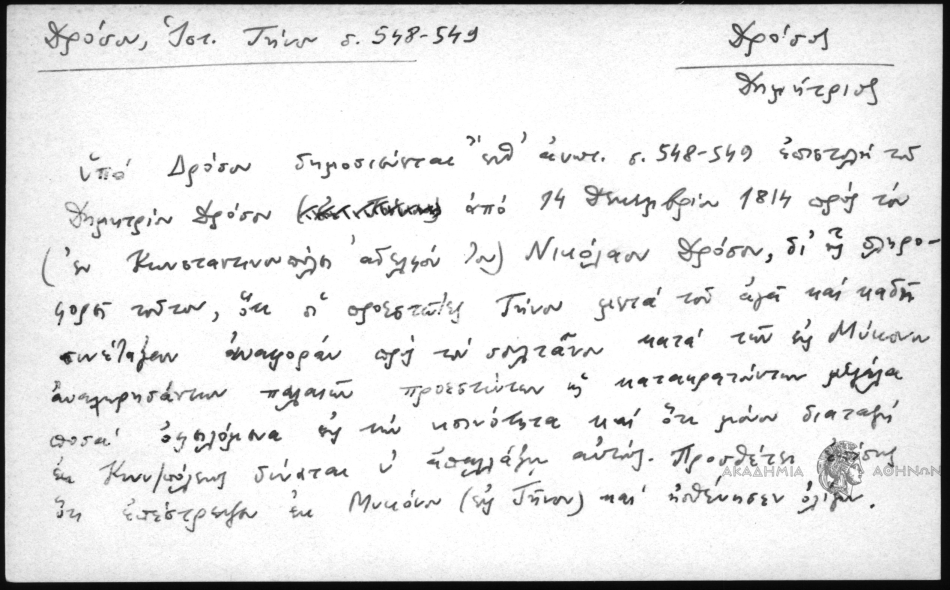 Δρόσου, Ἱστ. Τήνου σ. 548-549
Δρόσος
Δημήτριος
ὑπό Δρόσου δημοσιεύεται ἐνθ' ἀνωτ. σ. 548-549 ἐπιστολή τοῦ
Δημητρίου Δρόσου ἀπό 14 Δεκεμβρίου 1814 πρός τόν
(ἐν Κωνσταντινουπόλει ἀδελφόν του) Νικόλαον Δρόσον, δι' ἧς πληρο-
φορεῖ τοῦτον, ὅτι οἱ προεστῶτες Τήνου μετά τοῦ ἀγᾶ καί καδῆ
συνέταξαν ἀναφοράν πρός τόν σουλτᾶνον κατά τῶν εἰς Μύκονον
ἀναχωρησάντων παλαιῶν προεστώτων ὡς κατακρατούντων μεγάλα
ποσά ὀφειλόμενα εἰς τήν κοινότητα καί ὅτι μόνον διαταγή
ἐκ Κων/πόλεως δύναται ν' ἀπαλλάξῃ αὐτούς. Προσθέτει ἐπίσης
ὅτι ἐπέστρεψεν ἐκ Μυκόνου (εἰς Τῆνον) καί ἠσθένησεν ὀλίγον.
ΑΚΑΔΗΜΙΑ ΑΘΗΝΩΝ